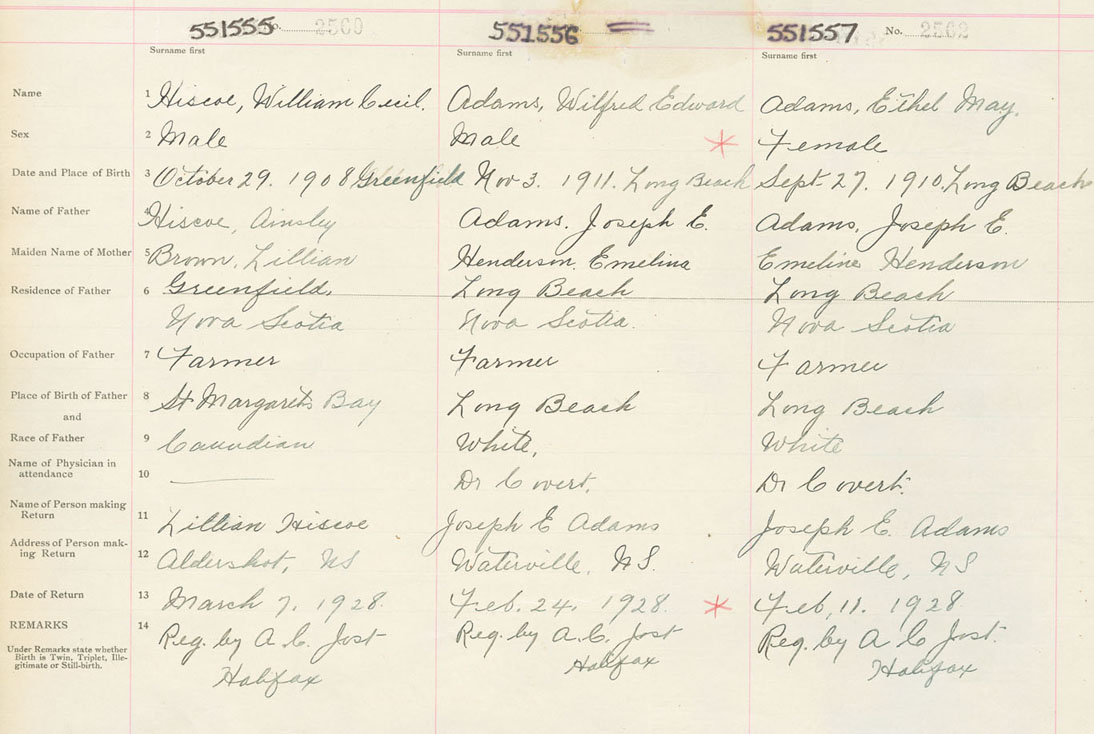 551555 No. 2560 551556 551557 No. 2562
Surname first Surname first Surname first
Name 1 Hiscoe, William Cecil. Adams, Wilfred Edward Adams, Ethel May.
Sex 2 Male Male * Female
Date and Place of Birth 3 October 29. 1908 Greenfield Nov 3. 1911. Long Beach Sept. 27. 1910. Long Beach
Name of Father 4 Hiscoe, Ainsley Adams. Joseph E. Adams, Joseph E.
Maiden Name of Mother 5 Brown, Lillian Henderson. Emelina Emeline Henderson
Residence of Father 6 Greenfield, Long Beach Long Beach
Nova Scotia Nova Scotia. Nova Scotia
Occupation of Father 7 Farmer Farmer Farmer
Place of Birth of Father 8 St Margarets Bay Long Beach Long Beach
and
Race of Father 9 Canadian White, White
Name of Physician in
attendance 10 Dr Covert. Dr Covert.
Name of Person making
Return 11 Lillian Hiscoe Joseph E Adams Joseph E. Adams
Address of Person mak-
ing Return 12 Aldershot, NS Waterville, N.S. Waterville, NS
Date of Return 13 March 7, 1928. Feb. 24, 1928. * Feb, 11. 1928
REMARKS 14 Reg. by A. C. Jost Reg. by A. C. Jost Reg. by A C Jost.
Under Remarks state whether
Birth is Twin, Triplet, Ille-
gitimate or Still-birth.
Halifax Halifax Halifax